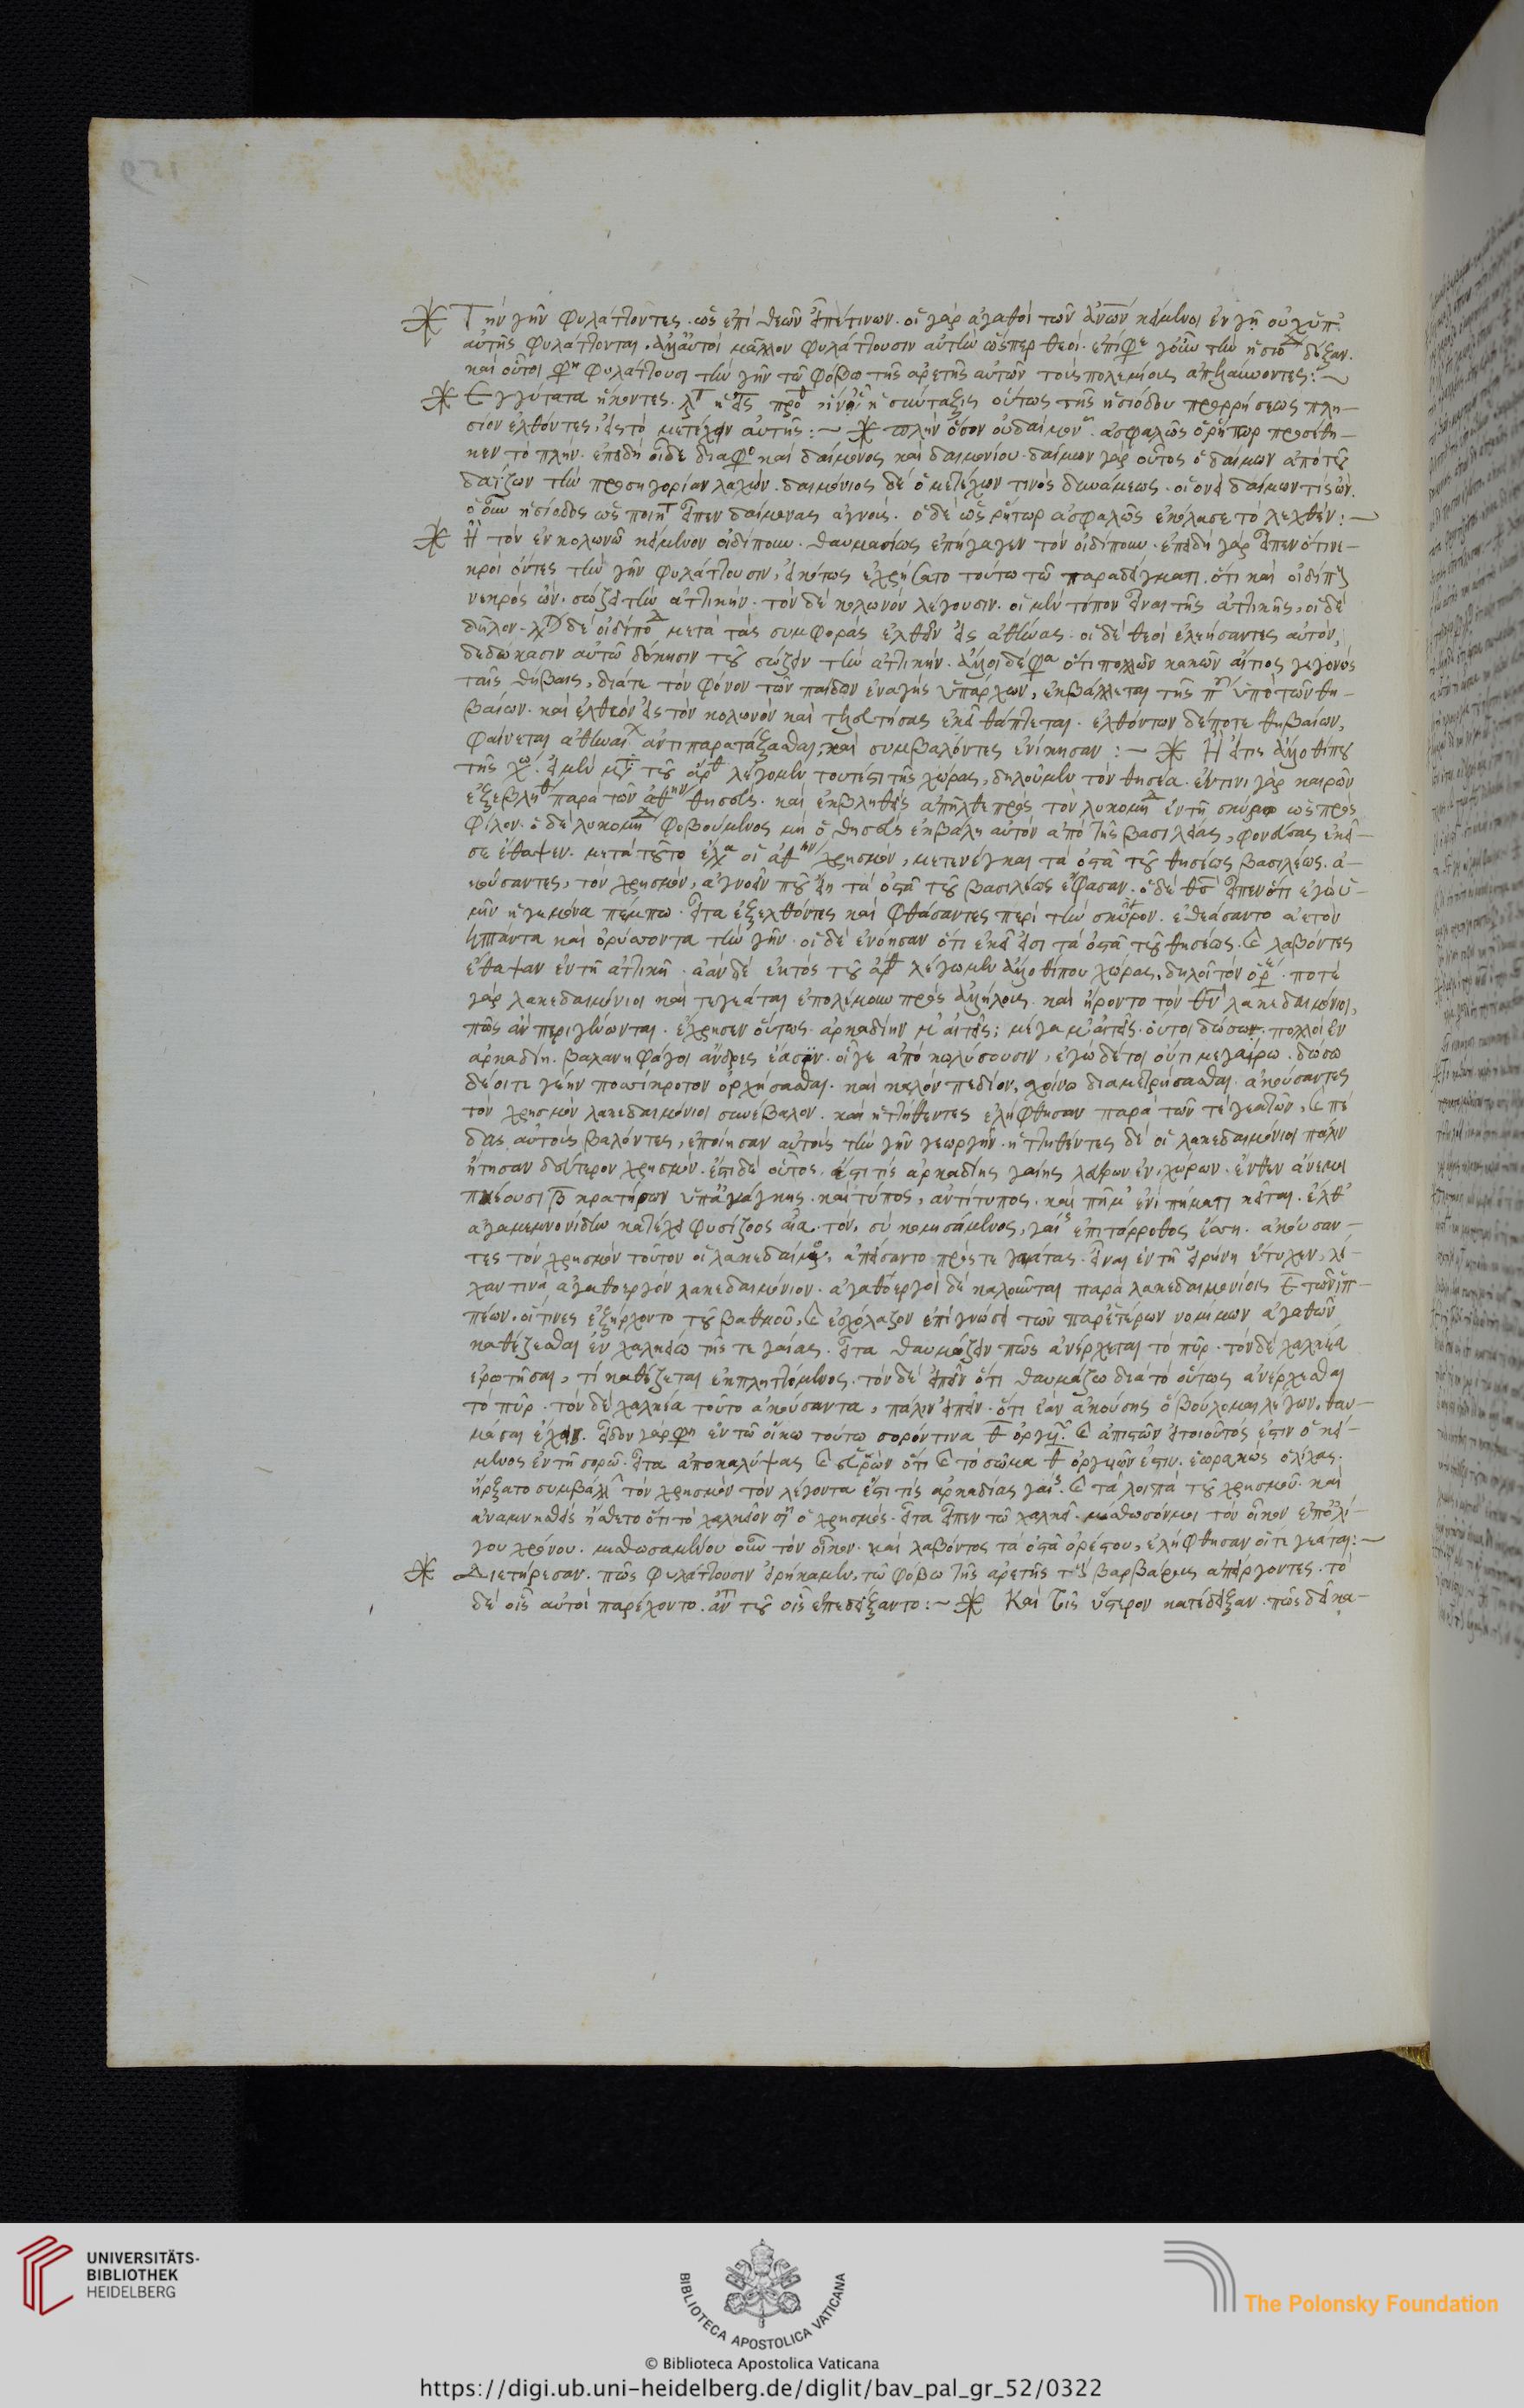 ※ Τὴν γῆν φυλάττοντες. ὡς ἐπὶ θεῶν εἶπέ τινων. οἱ γὰρ ἀγαθοὶ τῶν ἀνων κείμενοι ἐν γῆ οὐχ ὑπ'
αὐτῆς φυλάττονται. ἀλλ' αὐτοὶ μᾶλλον φυλάττουσιν αὐτὴν ὥσπερ θεοί. γοῦν τὴν δόξαν.
καὶ οὗτοι φυλάττουσι τὴν γῆν τῶ φόβω τῆς ἀρετῆς αὐτῶν τοὺς πολεμίους ἀπελαύνοντες: ~
※ Ἐγγύτατα ἥκοντες. ἡ σύνταξις οὕτως τῆς ἡσιόδου προρρήσεως πλη-
σίον ἐλθόντες, εἰς τὸ μετέχειν αὐτῆς: ~ ※ πλὴν ὅσον οὐ δαίμον. ἀσφαλῶς ὁ ῥήτωρ προσέθη-
κεν τὸ πλήν. ἐπειδὴ οἶδε καὶ δαίμονος καὶ δαιμονίου. δαίμων γὰρ οὗτος ὁ δαίμων ἀπὸ τοῦ
δαΐζων τὴν προσηγορίαν λαχών. δαιμόνιος δὲ ὁ μετέχων τινὸς δυνάμεως. οἱονεὶ δαίμων τίς ὤν.
ὁ οὖν ἡσίοδος ὡς ποιητ εἶπεν δαίμονας ἁγνούς. ὁ δὲ ὡς ῥήτωρ ἀσφαλῶς ἐκόλασε τὸ λεχθέν: ~
※ Ἢ τὸν ἐν κολωνῶ κείμενον οἰδίπουν. θαυμασίως ἐπήγαγεν τὸν οἰδίπουν. ἐπειδὴ γὰρ εἶπεν ὅτι νε-
κροὶ ὄντες τὴν γῆν φυλάττουσιν, εἰκότως ἐχρήσατο τούτω τῶ παραδείγματι. ὅτι καὶ οἰδίπους
νεκρὸς ὤν. σώζει τὴν ἀττικήν. τὸν δὲ κολωνὸν λέγουσιν. οἱ μὲν τόπον εἶναι τῆς ἀττικῆς, οἱ δὲ
δῆλον. δὲ οἰδίπο μετὰ τὰς συμφορὰς ἐλθεῖν εἰς ἀθήνας. οἱ δὲ θεοὶ ἐλεήσαντες αὐτὸν,
δεδώκασιν αὐτῶ δόκησιν τοῦ σώζειν τὴν ἀττικήν. ἄλλοι δέ φα ὅτι πολλῶν κακῶν αἴτιος γεγονὼς
ταῖς θήβαις, διά τε τὸν φόνον τῶν παίδων ἐναγὴς ὑπάρχων, ἐκβάλλεται τῆς π ὑπὸ τῶν θη-
βαίων. καὶ ἐλθὼν εἰς τὸν κολωνὸν καὶ τελευτήσας ἐκεῖ θάπτεται. ἐλθόντων δέ ποτε θηβαίων,
φαίνεται ἀθηναί ἀντιπαρατάξασθαι, καὶ συμβαλόντες ἐνίκησαν: ~ ※ Ἢ εἴτις ἄλλοθί που
τῆς χω. εἰ μὲν μτ τοῦ ἄρθ λέγομεν τουτέστι τῆς χώρας, δηλοῦμεν τὸν θησέα. ἔν τινι γὰρ καιρῶ
ἐξεβλήθ παρὰ τῶν ἀθην θησεύς. καὶ ἐκβληθεὶς ἀπῆλθε πρὸς τὸν λυκομή ἐν τῆ σκύρω ὡς πρὸς
φίλον. ὁ δὲ λυκομή φοβούμενος μὴ ὁ θησεὺς ἐκβάλη αὐτὸν ἀπὸ τῆς βασιλείας, φονεύσας ἐκεῖ-
σε ἔθαψεν. μετὰ τοῦτο οἱ ἀθην χρησμὸν, μετενέγκαι τὰ ὀστᾶ τοῦ θησέως βασιλέως. ἀ-
κούσαντες, τὸν χρησμὸν, ἀγνοεῖν ποῦ εἴη τὰ ὀστᾶ τοῦ βασιλέως ἔφασαν. ὁ δὲ θσ εἶπεν ὅτι ἐγὼ ὑ-
μῖν ἡγεμόνα πέμπω. εἶτα ἐξελθόντες καὶ φθάσαντες περὶ τὴν σκῦρον. ἐθεάσαντο ἀετὸν
ἱπτάντα καὶ ὀρύσσοντα τὴν γῆν. οἱ δὲ ἐνόησαν ὅτι ἐκεῖ εἰσι τὰ ὀστᾶ τοῦ θησέως. καὶ λαβόντες
ἔθαψαν ἐν τῆ ἀττικῆ. ἐὰν δὲ ἐκτὸς τοῦ ἄρθ λέγωμεν ἄλλοθί που χώρας, δηλοῖ τὸν ὀρέ. ποτὲ
γὰρ λακεδαιμόνιοι καὶ τεγεάται ἐπολέμουν πρὸς ἀλλήλους. καὶ ἤροντο τὸν θν λακεδαιμόνιοι,
πῶς ἂν περιγένωνται. ἔχρησεν οὕτως. ἀρκαδίην μ' αἰτεῖς; μέγα μ' αἰτεῖς. οὔτοι δώσω. πολλοὶ ἐν
ἀρκαδίη. βαλανηφάγοι ἄνδρες ἔασιν. οἵ γε ἀποκωλύσουσιν, ἐγὼ δέ τοι οὔτι μεγαίρω. δώσω
δέ οι τεγέην ποσσίκροτον ὀρχήσασθαι. καὶ καλὸν πεδίον, σχοίνω διαμετρήσασθαι. ἀκούσαντες
τὸν χρησμὸν λακεδαιμόνιοι συνέβαλον. καὶ ἡττηθέντες ἐλήφθησαν παρὰ τῶν τεγεατῶν, καὶ πέ
δας αὐτοῖς βαλόντες, ἐποίησαν αὐτοὺς τὴν γῆν γεωργεῖν. ἡττηθέντες δὲ οἱ λακεδαιμόνιοι πάλιν
ἤτησαν δεύτερον χρησμόν. ἔστι δὲ οὗτος, ἔστι τίς ἀρκαδίης γαίης ἐν χώρων. ἔνθεν ἄνεμοι
πνέουσι β κρατήρων ὑπ' ἀνάγκης. καὶ τύπος, ἀντίτυπος. καὶ πῆμ' ἐνὶ πήματι κεῖται. ἔνθ'
ἀγαμεμνονίδην κατέχει φυσίζοος αἶα. τόν, σὺ κομισάμενος, γαί ἐπιτάρροθος ἔσση. ἀκούσαν-
τες τὸν χρησμὸν τοῦτον οἱ λακεδαιμό, ἐν τῆ εἰρήνη ἔτυχεν, λί-
χαν τινὰ ἀγαθοεργὸν λακεδαιμόνιον. ἀγαθοεργοὶ δὲ καλοῦνται παρὰ λακεδαιμονίοις ἐκ τῶν ἱπ-
πέων. οἵτινες ἐξήρχοντο τοῦ βαθμοῦ, καὶ ἐσχόλαζον ἐπὶ γνώσει τῶν παρ' ἑτέρων νομίμων ἀγαθῶν
καθέζεσθαι ἐν χαλκείω τῆς τεγέας. εἶτα θαυμάζειν πῶς ἀνέρχεται τὸ πῦρ. τὸν δὲ χαλκέα
ἐρωτῆσαι, τί καθέζεται ἐκπληττόμενος. τὸν δὲ εἰπεῖν ὅτι θαυμάζω διὰ τὸ οὕτως ἀνέρχεσθαι
τὸ πῦρ. τὸν δὲ χαλκέα τοῦτο ἀκούσαντα, πάλιν εἰπεῖν. ὅτι ἐὰν ἀκούσης ὃ βούλομαι λέγειν, θαυ-
μάσαι ἔχεις. εἶδον γάρ φη ἐν τῶ οἴκω τούτω σορόν τινα καὶ ἀπιστῶν εἰ τοιοῦτός ἐστιν ὁ κεί-
μενος ἐν τῆ σορῶ. εἶτα ἀποκαλύψας καὶ εὑρὼν ὅτι καὶ τὸ σῶμα ἐστιν. ἑωρακὼς ὁ λίχας.
ἤρξατο συμβάλλ τὸν χρησμὸν τὸν λέγοντα ἔστι τίς ἀρκαδίας γαί. καὶ τὰ λοιπὰ τοῦ χρησμοῦ. καὶ
ἀναμνησθεὶς ἤσθετο ὅτι τὸ χαλκεῖον ὁ χρησμός. εἶτα εἶπεν τῶ χαλκεῖ. μίσθωσόν μοι τὸν οἶκον ἐπ' ὀλί-
γου χρόνου. μισθωσαμένου οὖν τὸν οἶκον. καὶ λαβόντος τὰ ὀστᾶ ὀρέστου, ἐλήφθησαν οἱ τεγεάται: ~
※ Διετήρεσαν. πῶς φυλάττουσιν εἰρήκαμεν, τῶ φόβω τῆς ἀρετῆς τοὺς βαρβάρους ἀπείργοντες. τὸ
δὲ οἷς αὐτοὶ παρέχοντο. ἀντ τοῦ οἷς ἐπεδείξαντο: ~ ※ Καὶ τοῖς ὕστερον κατέδειξαν. πῶς δεῖ κα-
UNIVERSITÄTS-
BIBLIOTHEK
HEIDELBERG
BIBLIOTECA APOSTOLICA VATICANA
The Polonsky Foundation
© Biblioteca Apostolica Vaticana
https://digi.ub.uni-heidelberg.de/diglit/bav_pal_gr_52/0322